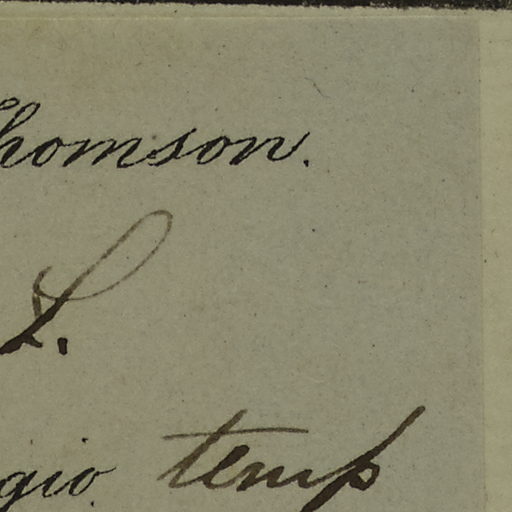 Thomson.
L.
gio temp